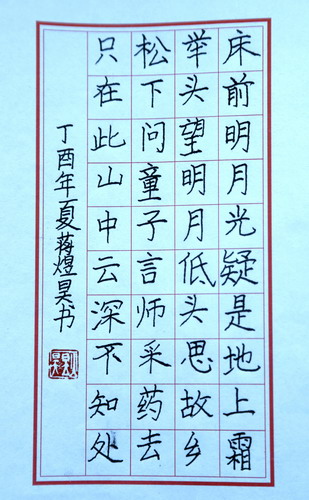 床前明月光疑是地上霜
举头望明月低头思故乡
松下问童子言师采药去
只在此山中云深不知处
丁酉年夏蒋煜昊书